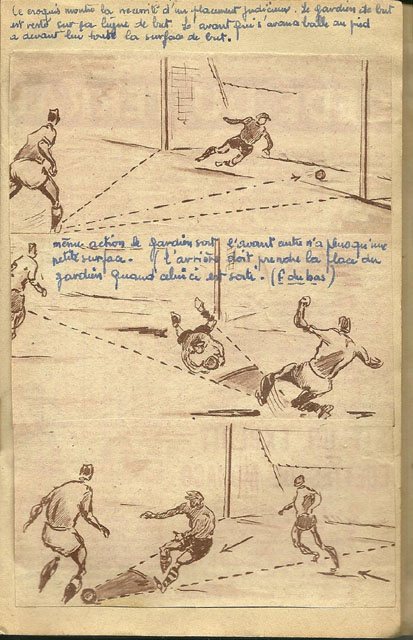 Ce croquis montre la nécessité d'un placement judicieux. Le gardien de but
est resté sur sa ligne de but. Le avant qui s'avance balle au pied
a devant lui toute la surface de but.
même action le gardien sort l'avant autre n'a plus qu'une
petite surface. l'arrière doit prendre la place du
gardien quand celui ci est sorti. (f du bas)